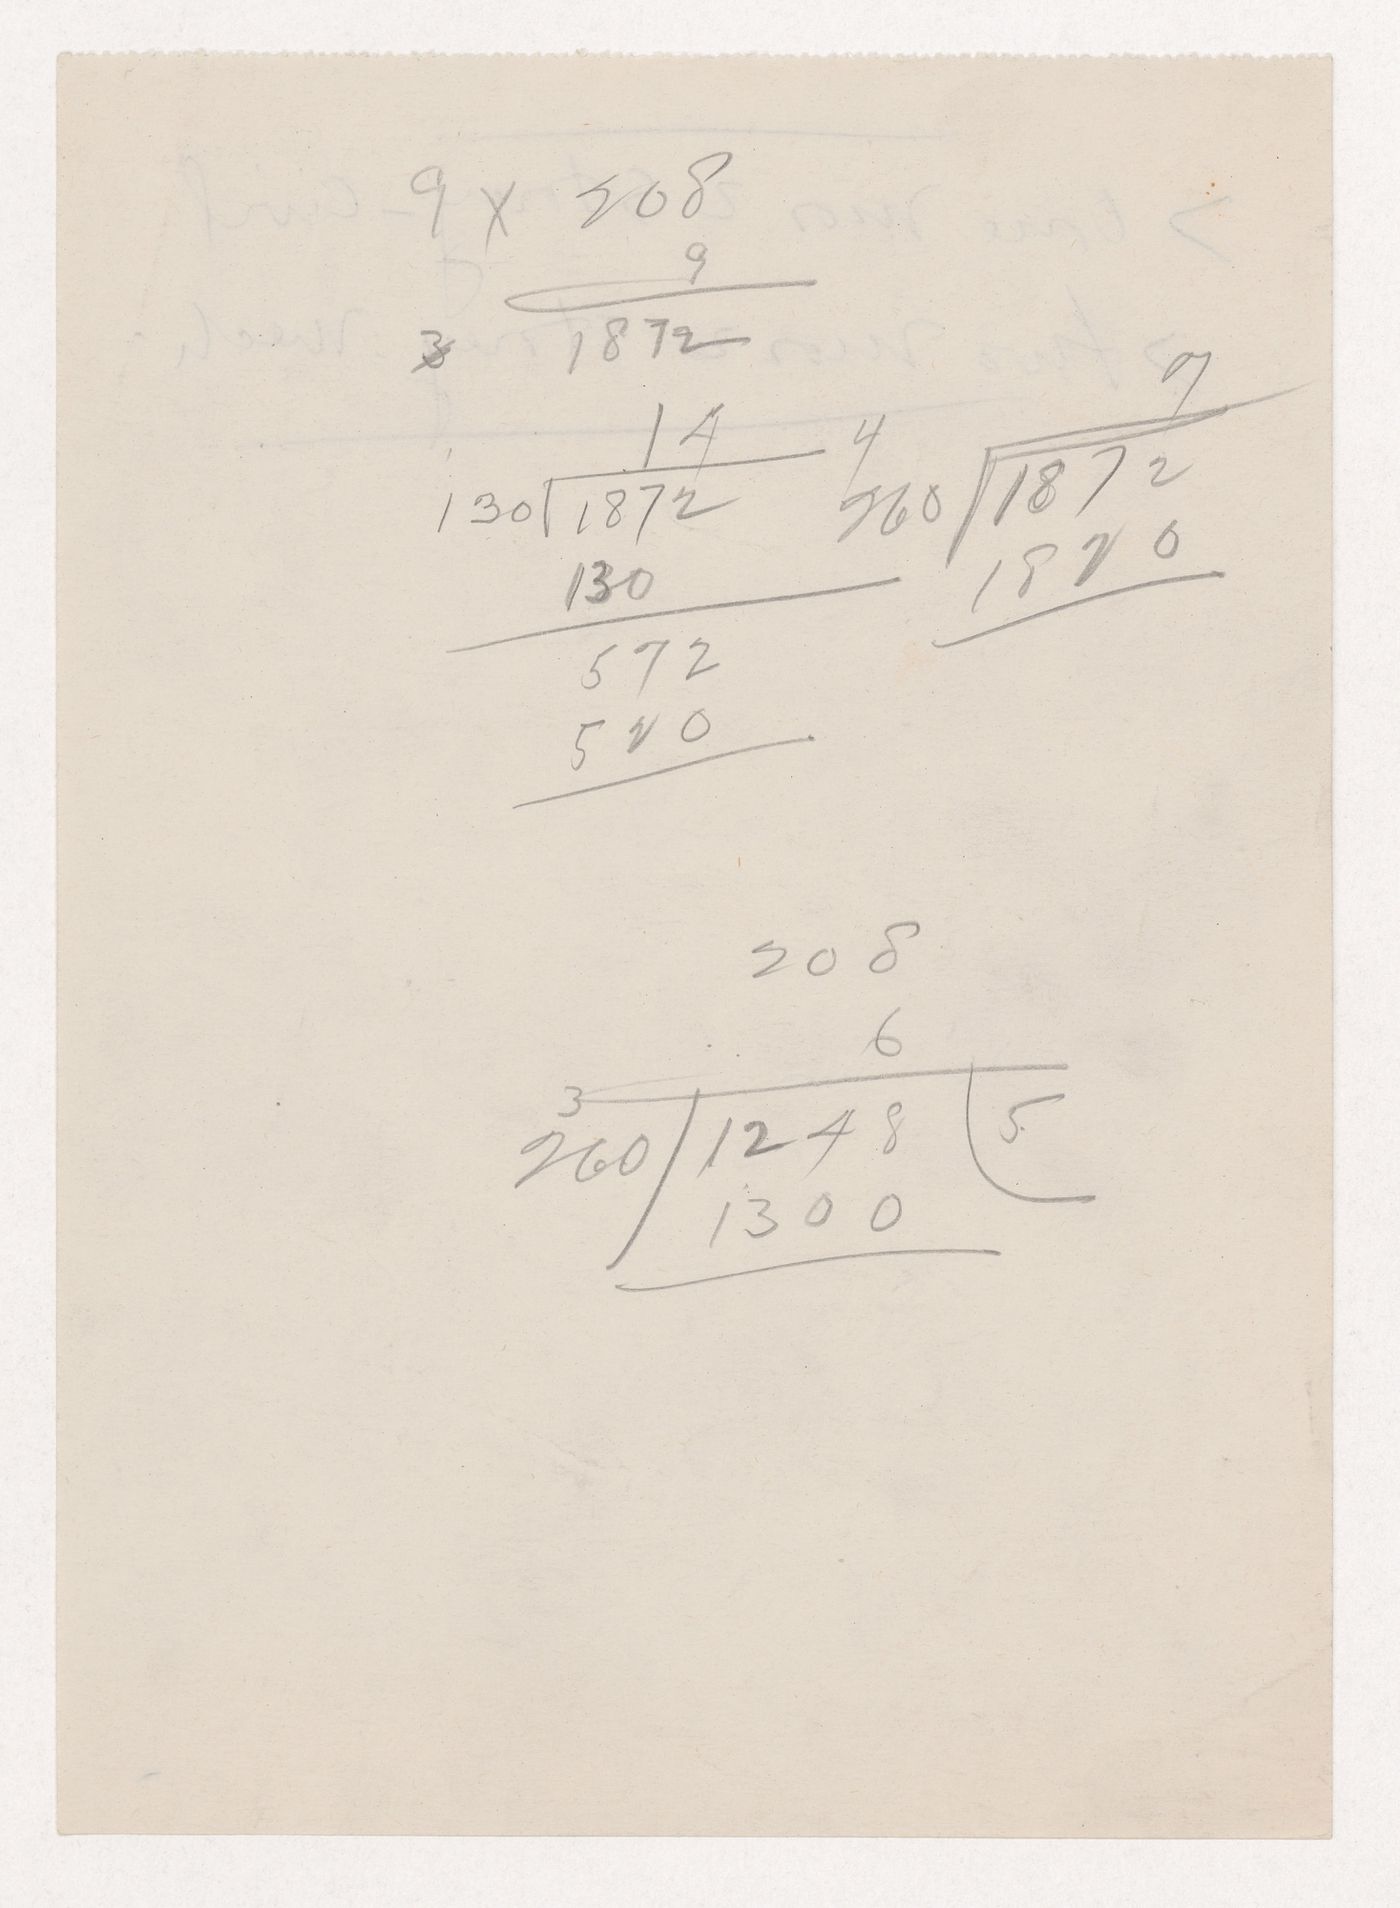 9 x 208
9
3 1872
14
130 1872
130
572
520
4 7
260 1872
1820
208
6
3
260 1248 5
1300